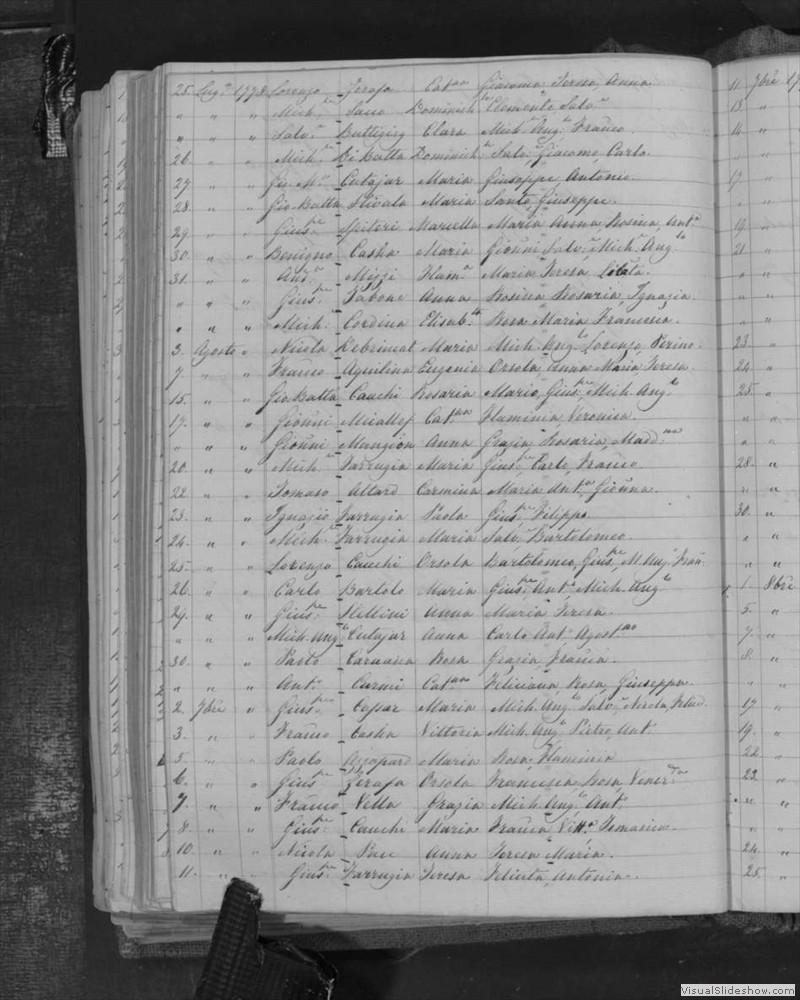 25. Lug.o 1778 Lorenzo Zerafa Cat.na Giacoma, Teresa, Anna 11 7bre 17
" " " Mich.le Saco Dominich.la Clemente Salv.re 13 "
" " " Salv.re Buttigieg Clara Mich. Ang.lo Franco. 14 "
26. " " Mich.le Di Batta Dominich.la Salv.re Giacomo, Carlo. " "
27. " " Gio. M.a Cutajar Maria Giuseppe, Antonio. 17 "
28. " " Gio Batta Maria Santo, Giuseppe. " "
29. " " Gius.pe Spiteri Marcella Maria Anna, Rosina, Ant.a 19 "
30. " " Benigno Casha Maria Giouni Salv.re Mich. Ang.lo 21 "
31. " " Ant.o Mizzi Flam.a Maria Teresa, " "
" " " Gius.pe Tabone Anna Rosina, Rosaria, Ignazia. " "
" " " Mich.le Cordina Elisab.ta Rosa Maria Francesca. " "
3. Agosto " Nicola Debrincat Maria Mich. Ang.lo Lorenzo 23 "
7. " " Franco Aquilina Eugenia Orsola Anna Maria Teresa. 24 "
15. " " Gio Batta Cauchi Rosaria Mario, Gius.pe Mich. Ang.lo 25 "
17. " " Giouni Micallef Cat.na Flaminia, Veronica. " "
" " " Giouni Mangion Anna Grazia, Rosaria, Madd.na " "
20. " " Mich.le Farrugia Maria Gius.pe Carlo, Franco. 28 "
22. " " Tomaso Attard Carmina Maria Ant.a Giouna. " "
23. " " Ignazio Farrugia Paola Gius.pe Filippo 30 "
24. " " Mich.le Farrugia Maria Salv. Bartolomeo. " "
25. " " Lorenzo Cauchi Orsola Bartolomeo, Gius.pe M. Ang. Fran. " "
26. " " Carlo Bartolo Maria Gius.pe Ant.o Mich. Ang.lo 1 8bre
29. " " Gius.pe Hellini Anna Maria Teresa. 5 "
" " " Mich. Ang.lo Cutajar Anna Carlo Ant.o Agost.no 7 "
30. " " Paolo Caruana Rosa Grazia, Franca. 8 "
" " " Ant.o Curmi Cat.na Feliciana, Rosa, Giuseppa. " "
2. 7bre " Gius.pe Capar Maria Mich. Ang.lo Salv.re Nicola, 17 "
3. " " Franco Casha Vittoria Mich. Ang.lo Pietro, Ant.o 19 "
5. " " Paolo Azzopard Maria Rosa, Flaminia 22 "
6. " " Gius.pe Zerafa Orsola Francesca, Rosa, Vener.da 23 "
7. " " Franco Vella Grazia Mich. Ang.lo Ant.o " "
8. " " Gius.pe Cauchi Maria Franca, Vitt.a Tomasica. " "
10. " " Nicola Pace Anna Teresa Maria. 24 "
11. " " Gius.pe Farrugia Teresa Felicita, Antonia. 25 "
VisualSlideshow.com